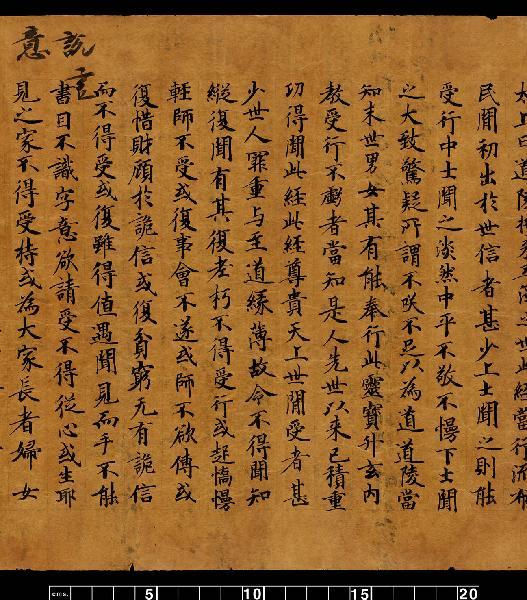 上曰道陵世此經當行流布
民間初出於世信者甚少上士聞之則能
受行中士聞之淡然中平不敬不慢下士聞
之大致驚疑所謂不咲不足以為道道陵當
知末世男女其有能奉行此靈寶升玄內
教受行不虧者當知是人先世以來已積重
功得聞此經此經尊貴天上世間受者甚
少世人罪重与至道緣薄故令不得聞知
縱復聞有其復老朽不得受行或趍憍慢
輕師不受或復事會不遂或師不欲傳或
復惜財顧於詭信或復貧窮无有詭信
而不得受或復雖得值遇聞見而手不能
書目不識字意欲請受不得從心或生耶
見之家不得受持或為大家長者婦女
說言
意
cms. 5 10 15 20